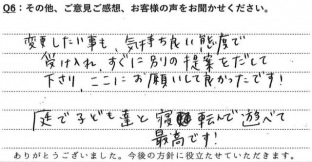 Q6：その他、ご意見ご感想、お客様の声をお聞かせください。
変更したい事も、気持ち良い態度で
受け入れ、すぐに別の提案をだして
下さり、ここにお願いして良かったです！
庭で子ども達と寝転んで遊べて
最高です！
ありがとうございました。今後の方針に役立たせていただきます。